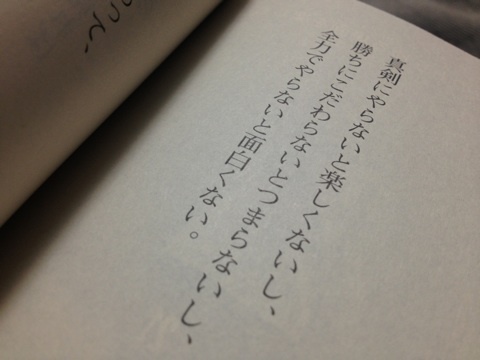 真剣にやらないと楽しくないし、
勝ちにこだわらないとつまらないし、
全力でやらないと面白くない。
って、